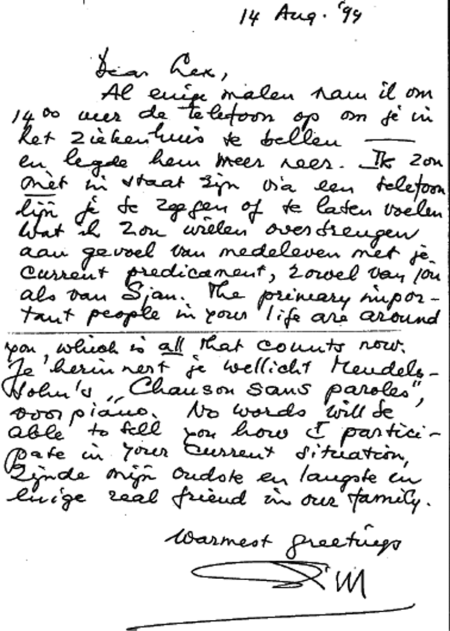 14 Aug. '99
Dear Lex,
Al enige malen nam ik om
14⁰⁰ uur de telefoon op om je in
het ziekenhuis te bellen —
en legde hem weer neer. Ik zou
niet in staat zijn via een telefoon
lijn je te zeggen of te laten voelen
wat ik zou willen overbrengen
aan gevoel van medeleven met je
current predicament, zowel van jou
als van Sjan. The primary impor-
tant people in your life are around
you, which is all that counts now.
Je herinnert je wellicht Mendels-
sohn's „Chanson sans paroles",
voor piano. No words will be
able to tell you how I partici-
pate in your current situation,
zijnde mijn oudste en langste in
enige real friend in our family.
Warmest greetings